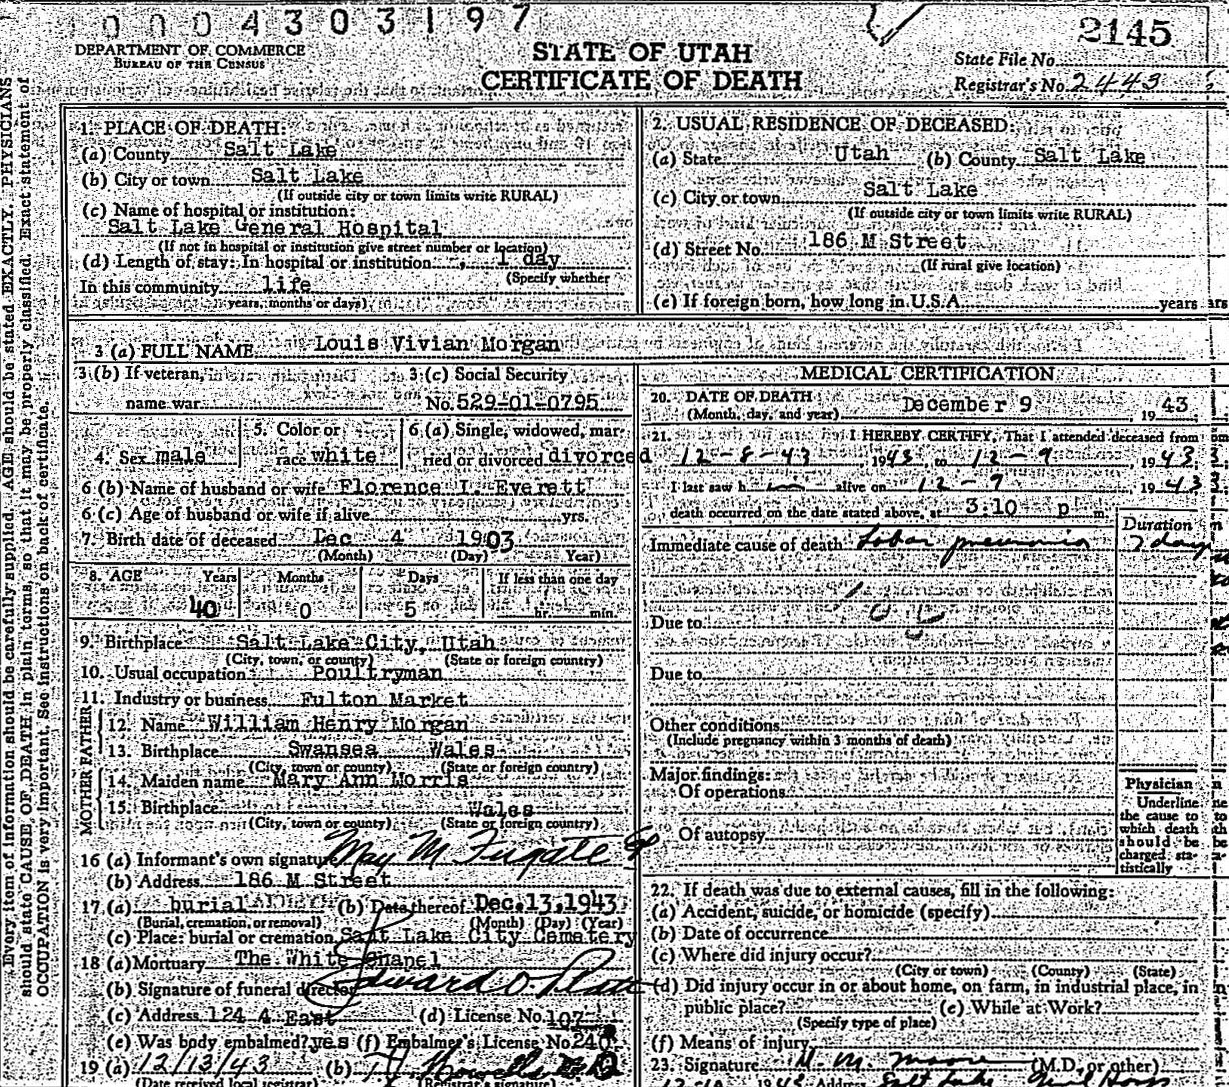 0004303197
2145
DEPARTMENT OF COMMERCE
BUREAU OF THE CENSUS
STATE OF UTAH
CERTIFICATE OF DEATH
State File No.
Registrar's No. 2443
Every item of information should be carefully supplied. AGE should be stated EXACTLY. PHYSICIANS
should state CAUSE OF DEATH in plain terms, so that it may be properly classified. Exact statement of
OCCUPATION is very important. See instructions on back of certificate.
1. PLACE OF DEATH:
(a) County Salt Lake
(b) City or town Salt Lake
(If outside city or town limits write RURAL)
(c) Name of hospital or institution:
Salt Lake General Hospital
(If not in hospital or institution give street number or location)
(d) Length of stay: In hospital or institution 1 day
(Specify whether
In this community life
years, months or days)
2. USUAL RESIDENCE OF DECEASED:
(a) State Utah (b) County Salt Lake
(c) City or town Salt Lake
(If outside city or town limits write RURAL)
(d) Street No. 186 M Street
(If rural give location)
(e) If foreign born, how long in U.S.A. years
3 (a) FULL NAME Louis Vivian Morgan
3 (b) If veteran, 3 (c) Social Security
name war No. 529-01-0795
4. Sex male 5. Color or race white 6 (a) Single, widowed, married or divorced divorced
6 (b) Name of husband or wife Florence I. Everett
6 (c) Age of husband or wife if alive yrs.
7. Birth date of deceased Dec 4 1903
(Month) (Day) Year)
8. AGE Years Months Days If less than one day
40 0 5 hr. min.
9. Birthplace Salt Lake City, Utah
(City, town, or county) (State or foreign country)
10. Usual occupation Poultryman
11. Industry or business Fulton Market
MOTHER FATHER
12. Name William Henry Morgan
13. Birthplace Swansea Wales
(City, town or county) (State or foreign country)
14. Maiden name Mary Ann Morris
15. Birthplace Wales
(City, town or county) (State or foreign country)
16 (a) Informant's own signature May M Fugate
(b) Address 186 M Street
17 (a) burial (b) Date thereof Dec. 13, 1943
(Burial, cremation, or removal) (Month) (Day) (Year)
(c) Place: burial or cremation Salt Lake City Cemetery
18 (a) Mortuary The White Chapel
(b) Signature of funeral director Edward O.
(c) Address 124 4 East (d) License No. 107
(e) Was body embalmed? yes (f) Embalmer's License No. 240
19 (a) 12/13/43 (b) T. Howells
(Date received local registrar) (Registrar's signature)
MEDICAL CERTIFICATION
20. DATE OF DEATH
(Month, day, and year) December 9 1943
21. I HEREBY CERTIFY, That I attended deceased from
12-8-43 1943, to 12-9, 1943
I last saw h alive on 12-9 1943
death occurred on the date stated above, at 3:10 p m.
Duration
Immediate cause of death Lobar pneumonia 7 days
Due to
Due to
Other conditions
(Include pregnancy within 3 months of death)
Major findings:
Of operations
Of autopsy
Physician
Underline
the cause to
which death
should be
charged sta-
tistically
22. If death was due to external causes, fill in the following:
(a) Accident, suicide, or homicide (specify)
(b) Date of occurrence
(c) Where did injury occur?
(City or town) (County) (State)
(d) Did injury occur in or about home, on farm, in industrial place, in
public place? (e) While at Work?
(Specify type of place)
(f) Means of injury
23. Signature M. M. Moore (M.D. or other)
1943 Address Salt Lake